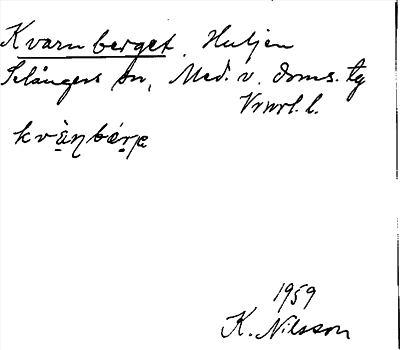 Kvarnberget. Huljen
Selångers sn, Med. v. doms. tg
Vrnrl. l.
kvàṇbærjɐ
1959
K. Nilsson